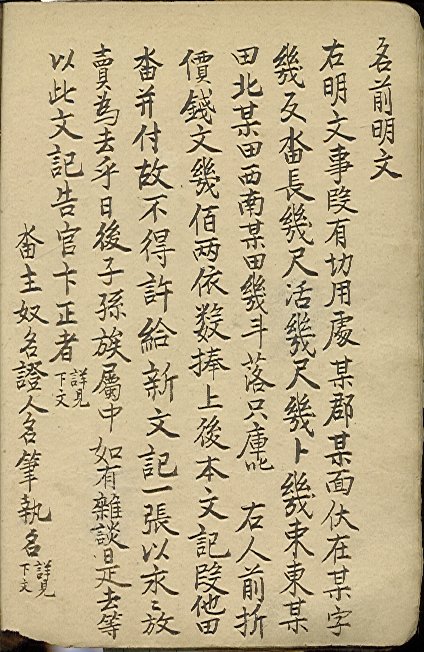 名前明文
右明文事段有切用處某郡某面伏在某字
幾㐊畓長幾尺活幾尺幾卜幾束東某
田北某田西南某田幾斗落只庫叱 右人前折
價錢文幾佰兩依數捧上後本文記段他田
畓幷付故不得許給新文記一張以永〻放
賣為去乎日後子孫族屬中如有雜談是去等
以此文記告官卞正者 詳見下文
畓主奴名證人名筆執名 詳見下文